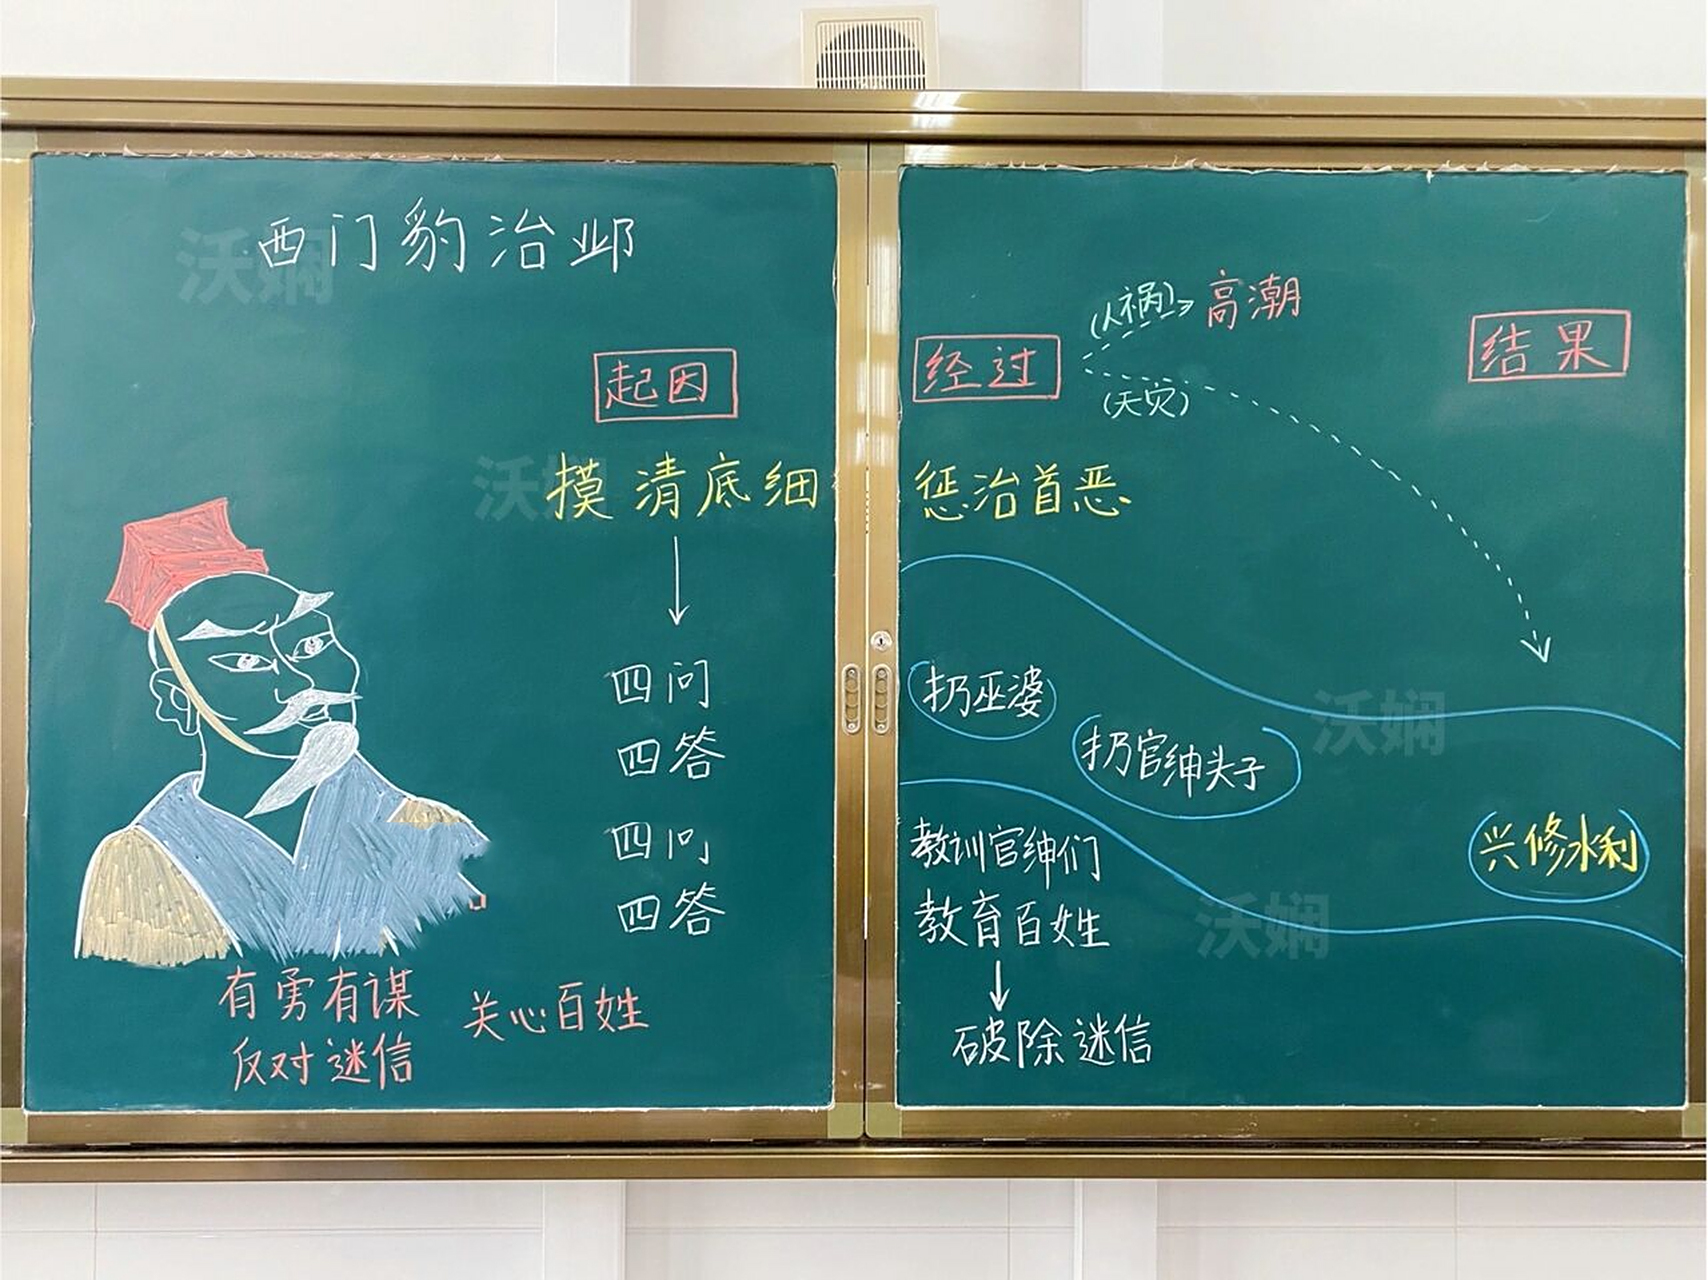 西门豹治邺
起因
摸清底细
四问
四答
四问
四答
有勇有谋
反对迷信
关心百姓
经过
(人祸)
高潮
(天灾)
结果
惩治首恶
扔巫婆
扔官绅头子
兴修水利
教训官绅们
教育百姓
破除迷信
沃娴
沃娴
沃娴
沃娴